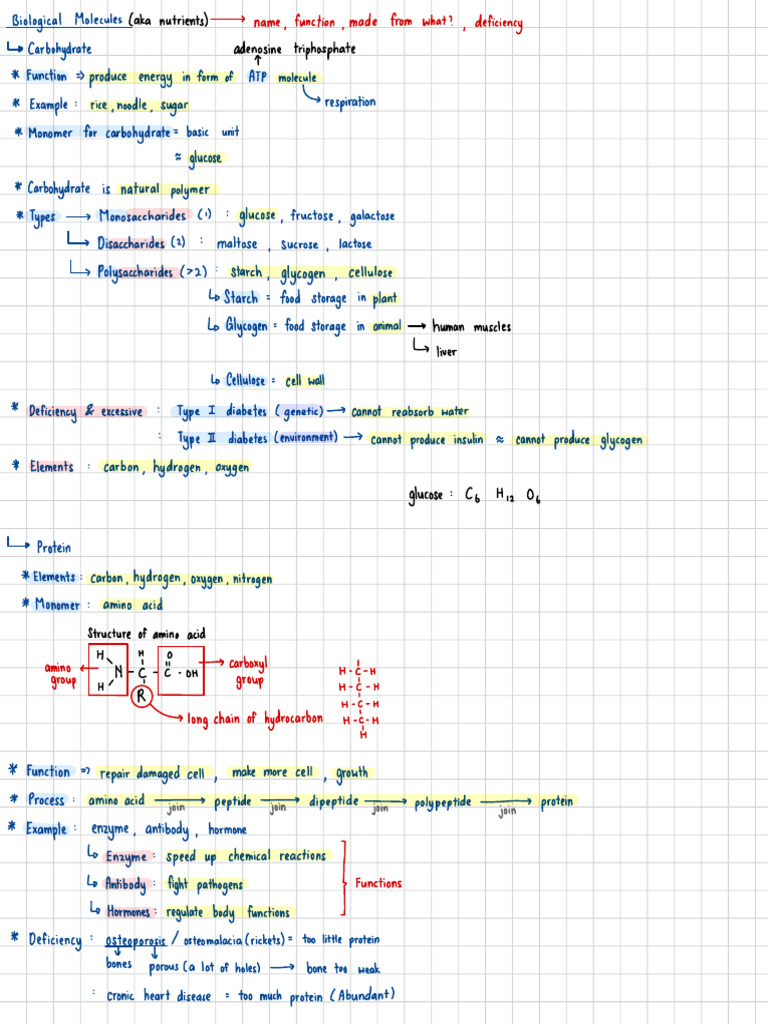 Biological Molecules (aka nutrients) → name, function, made from what?, deficiency
↳ Carbohydrate
adenosine triphosphate
* Function ⇒ produce energy in form of ATP molecule
→ respiration
* Example : rice, noodle, sugar
* Monomer for carbohydrate = basic unit
≈ glucose
* Carbohydrate is natural polymer
* Types → Monosaccharides (1) : glucose, fructose, galactose
↳ Disaccharides (2) : maltose, sucrose, lactose
↳ Polysaccharides (>2) : starch, glycogen, cellulose
↳ Starch = food storage in plant
↳ Glycogen = food storage in animal → human muscles
↳ liver
↳ Cellulose = cell wall
* Deficiency & excessive : Type I diabetes (genetic) → cannot reabsorb water
: Type II diabetes (environment) → cannot produce insulin ≈ cannot produce glycogen
* Elements : carbon, hydrogen, oxygen
glucose : C₆ H₁₂ O₆
↳ Protein
* Elements : carbon, hydrogen, oxygen, nitrogen
* Monomer : amino acid
Structure of amino acid
H H O
amino group ← N - C - C - OH → carboxyl group
H R
→ long chain of hydrocarbon
H - C - H
H - C - H
H - C - H
H - C - H
H
* Function ⇒ repair damaged cell, make more cell, growth
* Process : amino acid → peptide → dipeptide → polypeptide → protein
join join join join
* Example : enzyme, antibody, hormone
↳ Enzyme : speed up chemical reactions
↳ Antibody : fight pathogens } Functions
↳ Hormones : regulate body functions
* Deficiency : osteoporosis / osteomalacia (rickets) = too little protein
bones porous (a lot of holes) → bone too weak
: cronic heart disease = too much protein (Abundant)